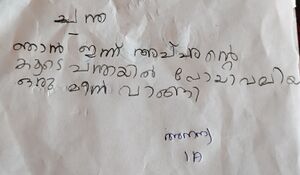 ചന്ത
ഞാൻ ഇന്ന് അച്ഛന്റെ
കൂടെ ചന്തയിൽ പോയി വലിയ
ഒരു മീൻ വാങ്ങി
അനന്യ
1A